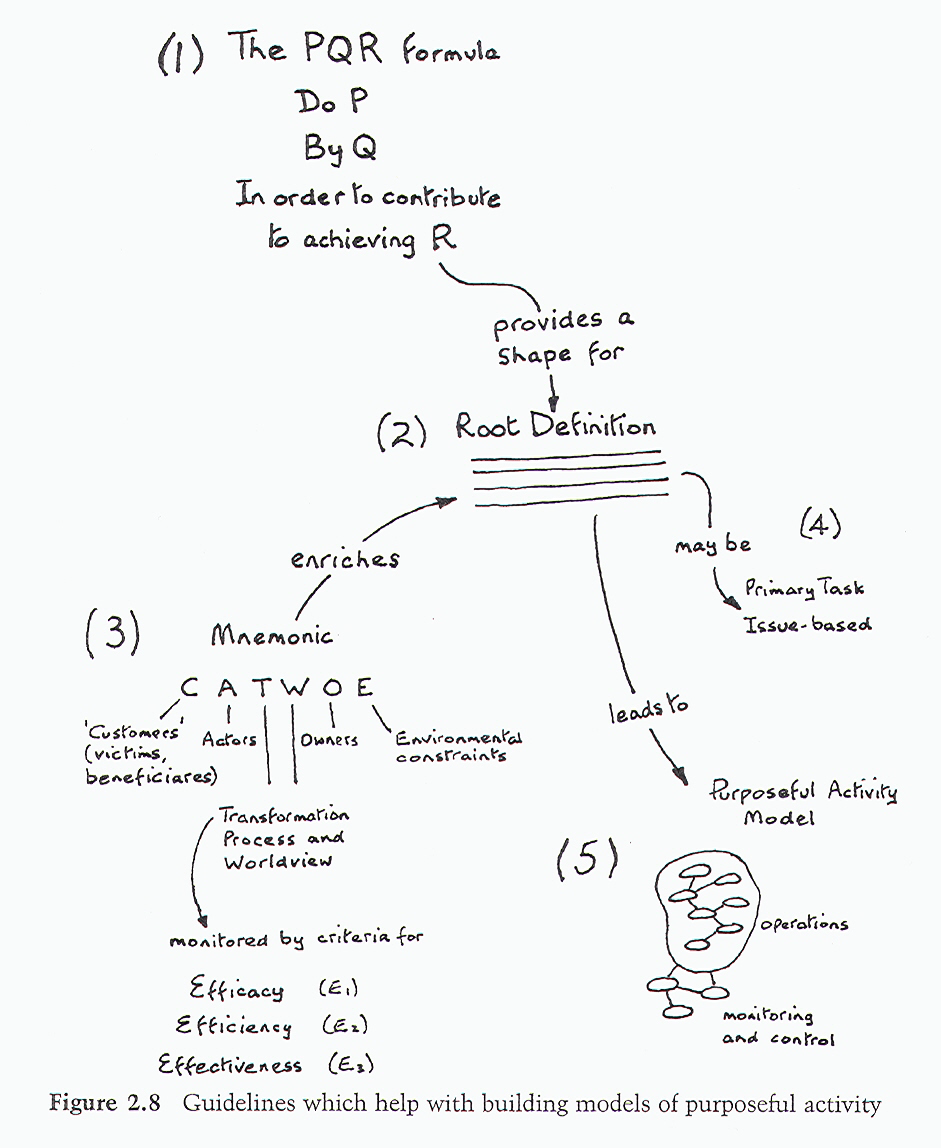 (1) The PQR formula
Do P
By Q
In order to contribute
to achieving R
provides a
shape for
(2) Root Definition
may be
(4)
Primary Task
Issue-based
enriches
(3) Mnemonic
C A T W O E
'Customers'
(victims,
beneficiares)
Actors
Owners
Environmental
constraints
Transformation
Process and
Worldview
monitored by criteria for
Efficacy (E1)
Efficiency (E2)
Effectiveness (E3)
leads to
Purposeful Activity
Model
(5)
operations
monitoring
and control
Figure 2.8 Guidelines which help with building models of purposeful activity